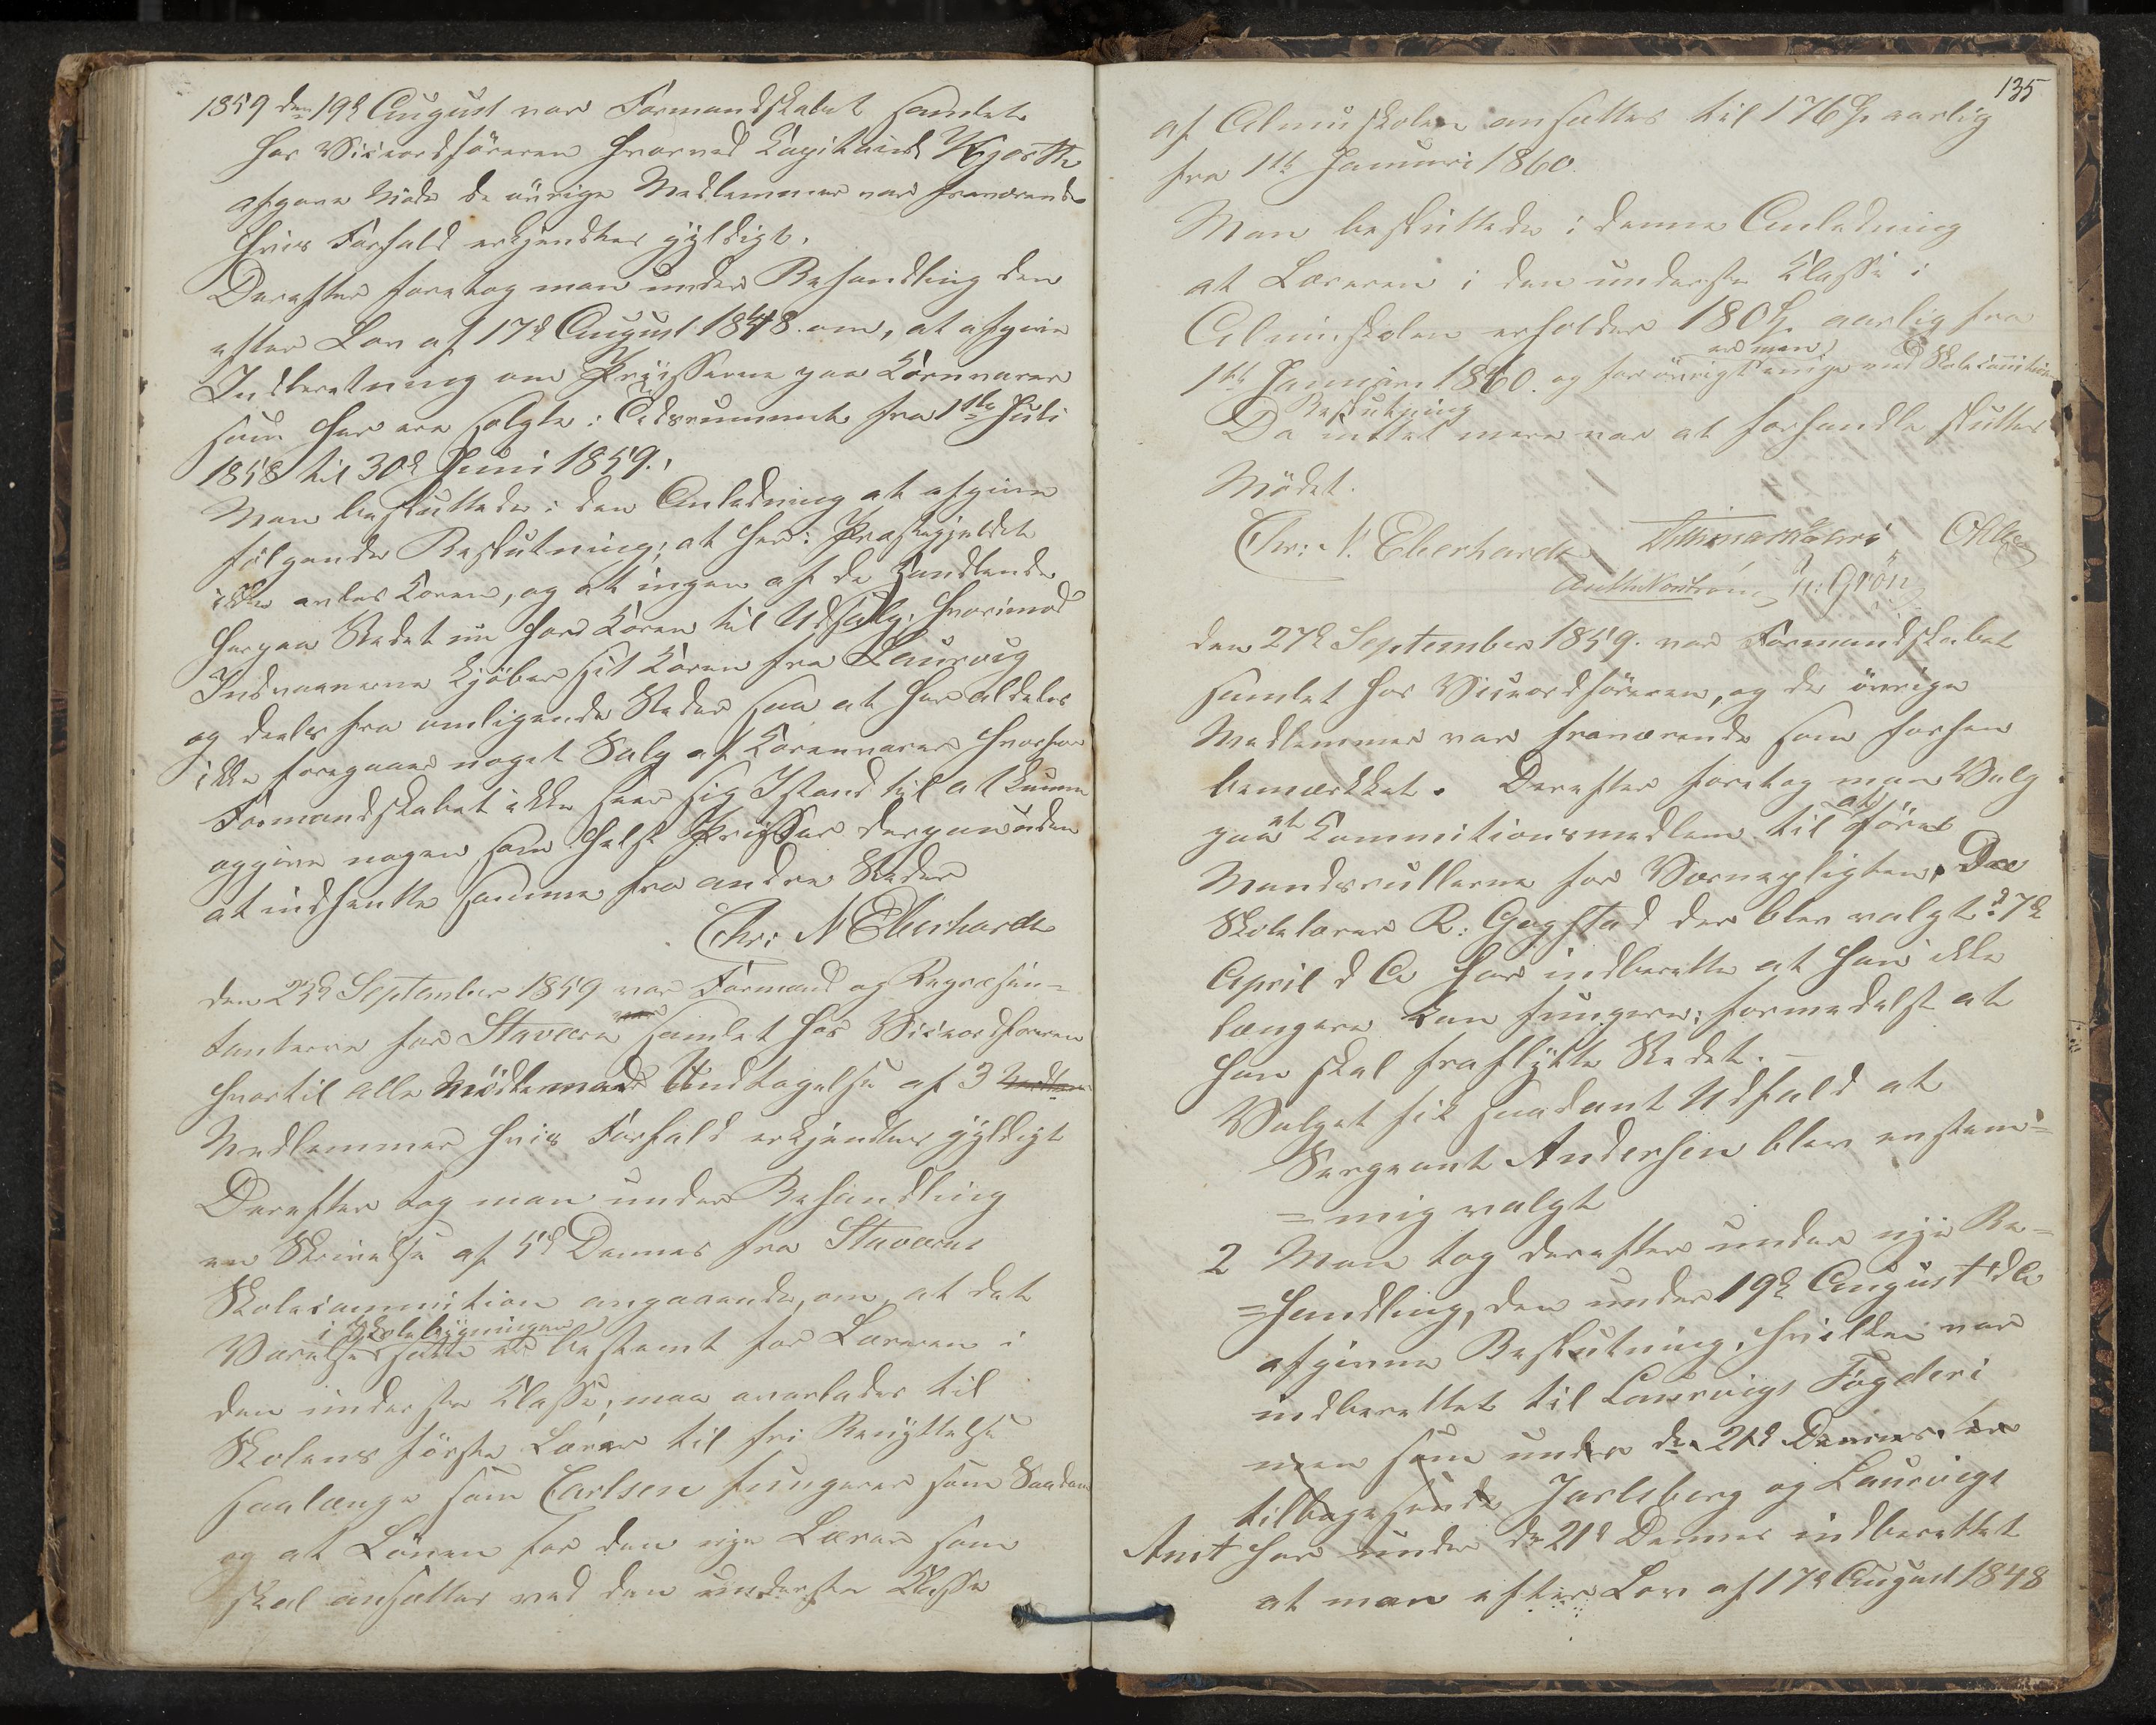 1859 den 19d August var Formandskabet samlet
hos Viceordføreren hvorved Capitaind Kjorth
afgave Møde de øvrige Medlemmer var fraværende
hvis Forfald erkjendtes gyldigt.
Derefter foretog man under Behandling den
efter Lov af 17d August 1848 om, at afgive
Indberetning om Priisserne paa Kornvarer
som her ere solgte i Tidsrummet fra 1ste Juli
1858 til 30d Juni 1859.
Man besluttede i den Anledning at afgive
følgende Beslutning; at her i Præstegjeldet
ikke avles Koren, og at ingen af de Handlende
herpaa Stedet nu har Koren til Udsalg, hvorimod
Indvaanerne kjøber sit Koren fra Laurvig
og deels fra omligende Steder saa at her aldeles
ikke foregaaer noget Salg af Korenvarer hvorfor
Formandskabet ikke seer sig Istand til at kunne
opgive nogen som helst Prisser derpaa uden
at indhentte samme fra andre Steder
Chr: N Eberhardt
den 23d September 1859 var Formænd og Repræsen=
tanterne for Stavern samlet hos Viceordføreren
hvortil alle Mødte med Undtagelse af 3
Medlemmer hvis Forfald erkjendtes gyldigt
Derefter tog man under Behandling
en Skrivelse af 5d Dennes fra Staverns
Skolecommition angaaende, om, at det
i Skolebygningen
Værelse som er bestemt for Læreren i
den underste Klasse, maa overlades til
Skolens første Lærer til fri Benyttelse
saalænge som Carlsen fungerer som Saadan
og at Lønen for den nye Lærer som
skal ansættes ved den underste Klasse
135
af Almuskolen ansettes til 176 Sp. aarlig
fra 1ste Januari 1860.
Man besluttede i denne Anledning
at Læreren i den underste Klasse i
Almuskolen erholder 180 Sp. aarlig fra
er man
1ste Januari 1860. og forøvrigt enige med Skolecommitionens
Beslutning
Da intet mere var at forhandle sluttes
Mødet.
Chr: N. Eberhardt
Anth Nordrum N: Grön
den 27d September 1859. var Formandskabet
samlet hos Viceordføreren, og de øvrige
Medlemmer var fraværende som forhen
bemærkket. Derefter foretog man Valg
paa et Kommitionsmedlem til at føre
Mandsrullerne for Værnepligten. Da
Skolelærer R: Gogstad der blev valgt d. 7d
April d A har indberette at han ikke
længere kan fungere, formedelst at
han skal fraflytte Stedet. –
Valget fik saadant Udfald at
Sergeant Andersen blev enstem=
=mig valgt
2 Man tog derefter under nye Be=
=handling, den under 19d August dA
afgivne Beslutning, hvilken var
indberettet til Laurvigs Fogderi
men som under den 21d Dennes er
tilbagesendt Jarlsberg og Laurvigs
Amt har under dn 21d Dennes indberettet
at man efter Lov af 17d August 1848